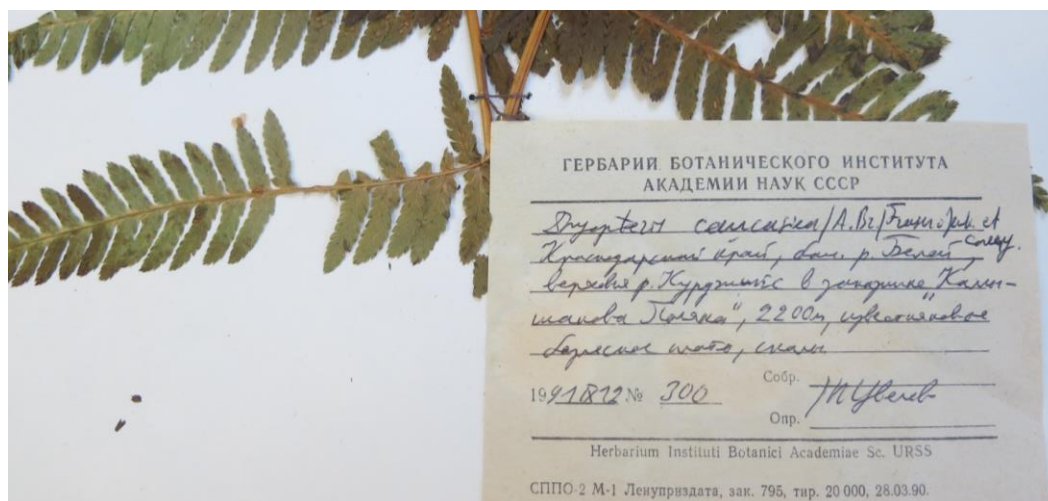 ГЕРБАРИЙ БОТАНИЧЕСКОГО ИНСТИТУТА
АКАДЕМИИ НАУК СССР
Dryopteris caucasica /A.Br./ Fraser-Jenk. et Corley.
Краснодарский край, бас. р. Белой,
верховья р. Курджипс в заказнике "Камы-
шанова Поляна", 2200м, известняковое
плато, скалы
1991 12 № 300
Собр.
Опр.
Н Цвелев
Herbarium Instituti Botanici Academiae Sc. URSS
СППО-2 М-1 Ленуприздата, зак. 795, тир. 20 000, 28.03.90.